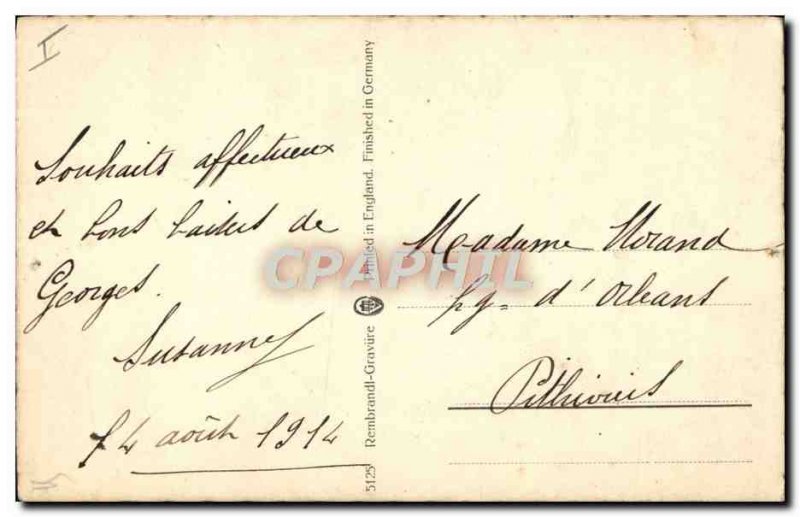 I
Souhaits affectueux
et bons baisers de
Georges.
Suzanne
14 août 1914
5125 Rembrandt-Gravüre Printed in England. Finished in Germany
CPAPHIL
Madame Morand
fg= d'Orléans
Pithiviers